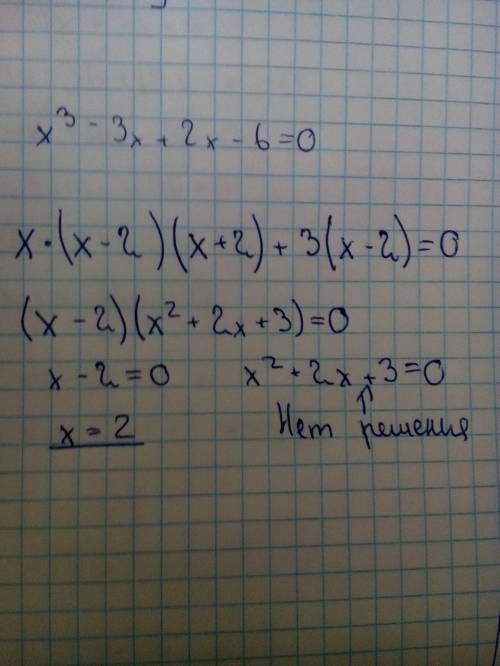 x³ - 3x + 2x - 6 = 0
x·(x - 2)(x + 2) + 3(x - 2) = 0
(x - 2)(x² + 2x + 3) = 0
x - 2 = 0 x² + 2x + 3 = 0
x = 2 Нет решения